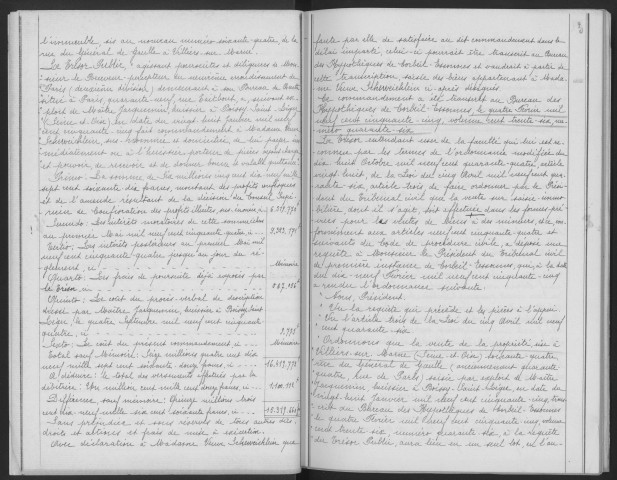 l'immeuble, sis au nouveau numéro soixante-quatre, de la
rue du Général de Gaulle à Villiers sur Marne.
Le Trésor Public, agissant poursuites et diligences de Mon-
sieur le Receveur-percepteur du neuvième arrondissement de
Paris (deuxième division), demeurant à son Bureau de
à Paris, quarante-neuf, rue, a, suivant ex-
ploit de Maître Jacquemin, huissier à Boissy Saint Léger,
(Seine et Oise), en date du vingt huit Janvier mil neuf
cent cinquante cinq, fait commandement à Madame Veuve
Schweichlein sus-nommée et domiciliée, de lui payer im-
médiatement ou à l'huissier porteur de pièces ayant charge
et pouvoir de recevoir et de donner bonne et valable quittance:
Primo - La somme de six millions cinq cent dix-neuf mille
sept cent soixante dix francs, montant des profits
et de l'amende résultant de la décision du Conseil Supé-
rieur de Confiscation des profits illicites, sus énoncée, ci
Secundo - Les intérêts moratoires de cette somme arrêtés
au premier Mai mil neuf cent cinquante quatre, ci
Tertio - Les intérêts postérieurs au premier Mai mil
neuf cent cinquante-quatre jusqu'au jour du rè-
glement, ci Mémoire
Quarto - Les frais de poursuite déjà exposés par
le Trésor, ci
Quinto - Le coût du procès-verbal de
dressé par Maître Jacquemin, huissier à Boissy Saint
Léger, le quatre Septembre mil neuf cent cinquante
quatre, ci
Sexto - Le coût du présent commandement, ci Mémoire
Total sauf Mémoire: Seize millions quatre cent dix
neuf mille sept cent soixante francs, ci
A déduire: le total des versements effectués par la
débitrice: Un million cent mille cent francs, ci
Différence, sauf mémoire: Quinze millions trois
cent dix-neuf mille six cent soixante francs, ci
Sans préjudice et sous réserves de tous autres dûs,
droits et actions et frais de mise à exécution.
Avec déclaration à Madame Veuve Schweichlein que
faute par elle de satisfaire au dit commandement dans le
délai imparti, celui-ci pourrait être transcrit au Bureau
des Hypothèques de Corbeil-Essonnes et vaudrait à partir de
cette transcription, saisie des biens appartenant à Mada-
me Veuve Schweichlein ci-après désignés.
Ce commandement a été transcrit au Bureau des
Hypothèques de Corbeil-Essonnes, le quatre Février mil
neuf cent cinquante cinq, volume cent trente-six, nu-
méro quarante six.
Le Trésor entendant user de la faculté qui lui est re-
connue par les termes de l'ordonnance modifiée du
dix huit Octobre mil neuf cent quarante-quatre, article
vingt huit, de la Loi du cinq Avril mil neuf cent qua-
rante six, article trois, de faire ordonner par le Prési-
dent du Tribunal civil que la vente, sur saisie immo-
bilière, dont il s'agit, soit effectuée dans les formes pré-
vues pour les ventes de biens à des mineurs, et ce con-
formément aux articles neuf cent cinquante-quatre et
suivants du Code de procédure civile, a déposé une
requête à Monsieur le Président du Tribunal civil
de première instance de Corbeil-Essonnes, qui, à la date
du dix-neuf Février mil neuf cent cinquante-cinq
a rendu l'ordonnance suivante:
"Nous, Président,
"Vu la requête qui précède et les pièces à l'appui
"Vu l'article trois de la Loi du cinq Avril mil neuf
cent quarante-six
"Ordonnons que la vente de la propriété sise à
Villiers-sur-Marne (Seine et Oise) soixante-quatre,
rue du Général de Gaulle (anciennement quarante
quatre, rue de Paris) saisie par exploit de Maître
Jacquemin, huissier à Boissy-Saint-Léger, en date du
vingt-huit Janvier mil neuf cent cinquante cinq, trans-
crite au Bureau des Hypothèques de Corbeil-Essonnes
le quatre Février mil neuf cent cinquante cinq, volume
cent trente six, numéro quarante-six, à la requête
du Trésor Public, aura lieu en un seul lot, en l'au-